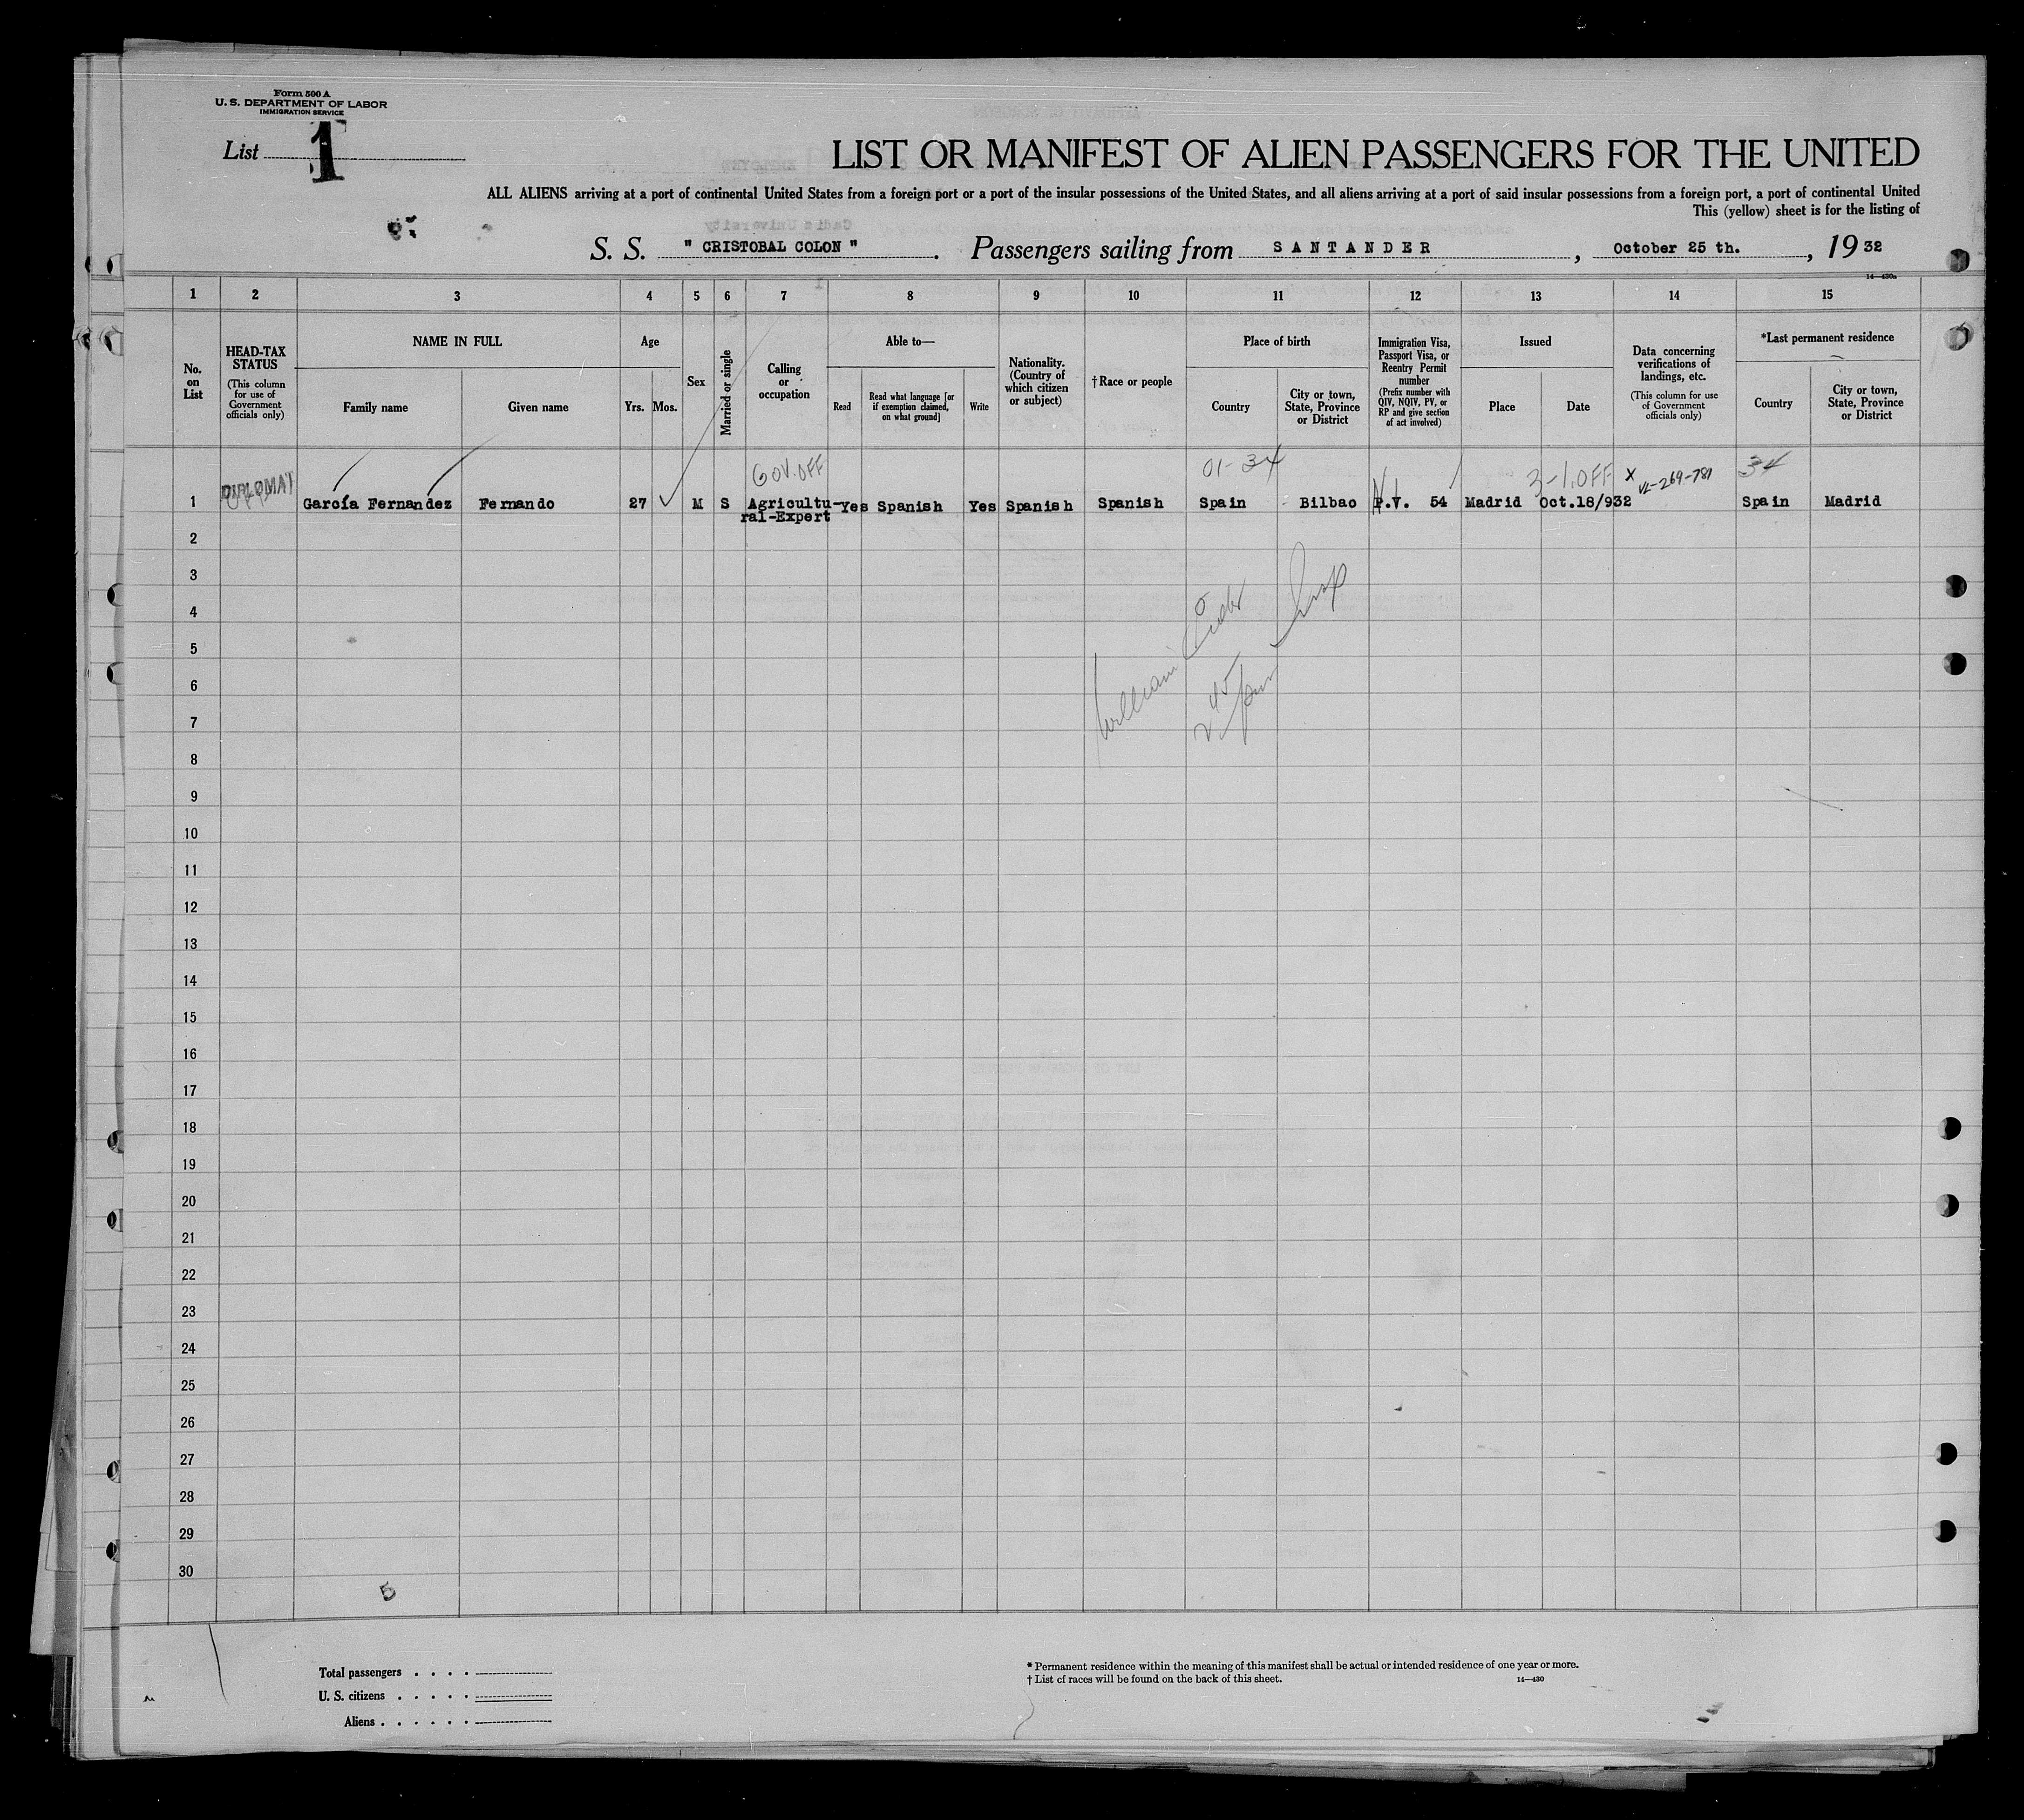 Form 500 A
U. S. DEPARTMENT OF LABOR
IMMIGRATION SERVICE
List 1
LIST OR MANIFEST OF ALIEN PASSENGERS FOR THE UNITED
ALL ALIENS arriving at a port of continental United States from a foreign port or a port of the insular possessions of the United States, and all aliens arriving at a port of said insular possessions from a foreign port, a port of continental United
This (yellow) sheet is for the listing of
S. S. " CRISTOBAL COLON ". Passengers sailing from SANTANDER, October 25 th., 19 32
14—430a
1 2 3 4 5 6 7 8 9 10 11 12 13 14 15
No. on List
HEAD-TAX STATUS
(This column for use of Government officials only)
NAME IN FULL
Family name
Given name
Age
Yrs. Mos.
Sex
Married or single
Calling or occupation
Able to—
Read
Read what language [or if exemption claimed, on what ground]
Write
Nationality. (Country of which citizen or subject)
† Race or people
Place of birth
Country
City or town, State, Province or District
Immigration Visa, Passport Visa, or Reentry Permit number
(Prefix number with QIV, NQIV, PV, or RP and give section of act involved)
Issued
Place
Date
Data concerning verifications of landings, etc.
(This column for use of Government officials only)
*Last permanent residence
Country
City or town, State, Province or District
GOV. OFF 01-34 3-1.OFF X VL-269-781 34
1 DIPLOMAT García Fernandez Fernando 27 M S Agricultu- Yes Spanish Yes Spanish Spanish Spain Bilbao P.V. 54 Madrid Oct.18/932 Spain Madrid
ral-Expert
2
3
4
5
6
7
8
9
10
11
12
13
14
15
16
17
18
19
20
21
22
23
24
25
26
27
28
29
30
5
William
Total passengers . . . .
U. S. citizens . . . . .
Aliens . . . . . .
* Permanent residence within the meaning of this manifest shall be actual or intended residence of one year or more.
† List of races will be found on the back of this sheet.
14—430